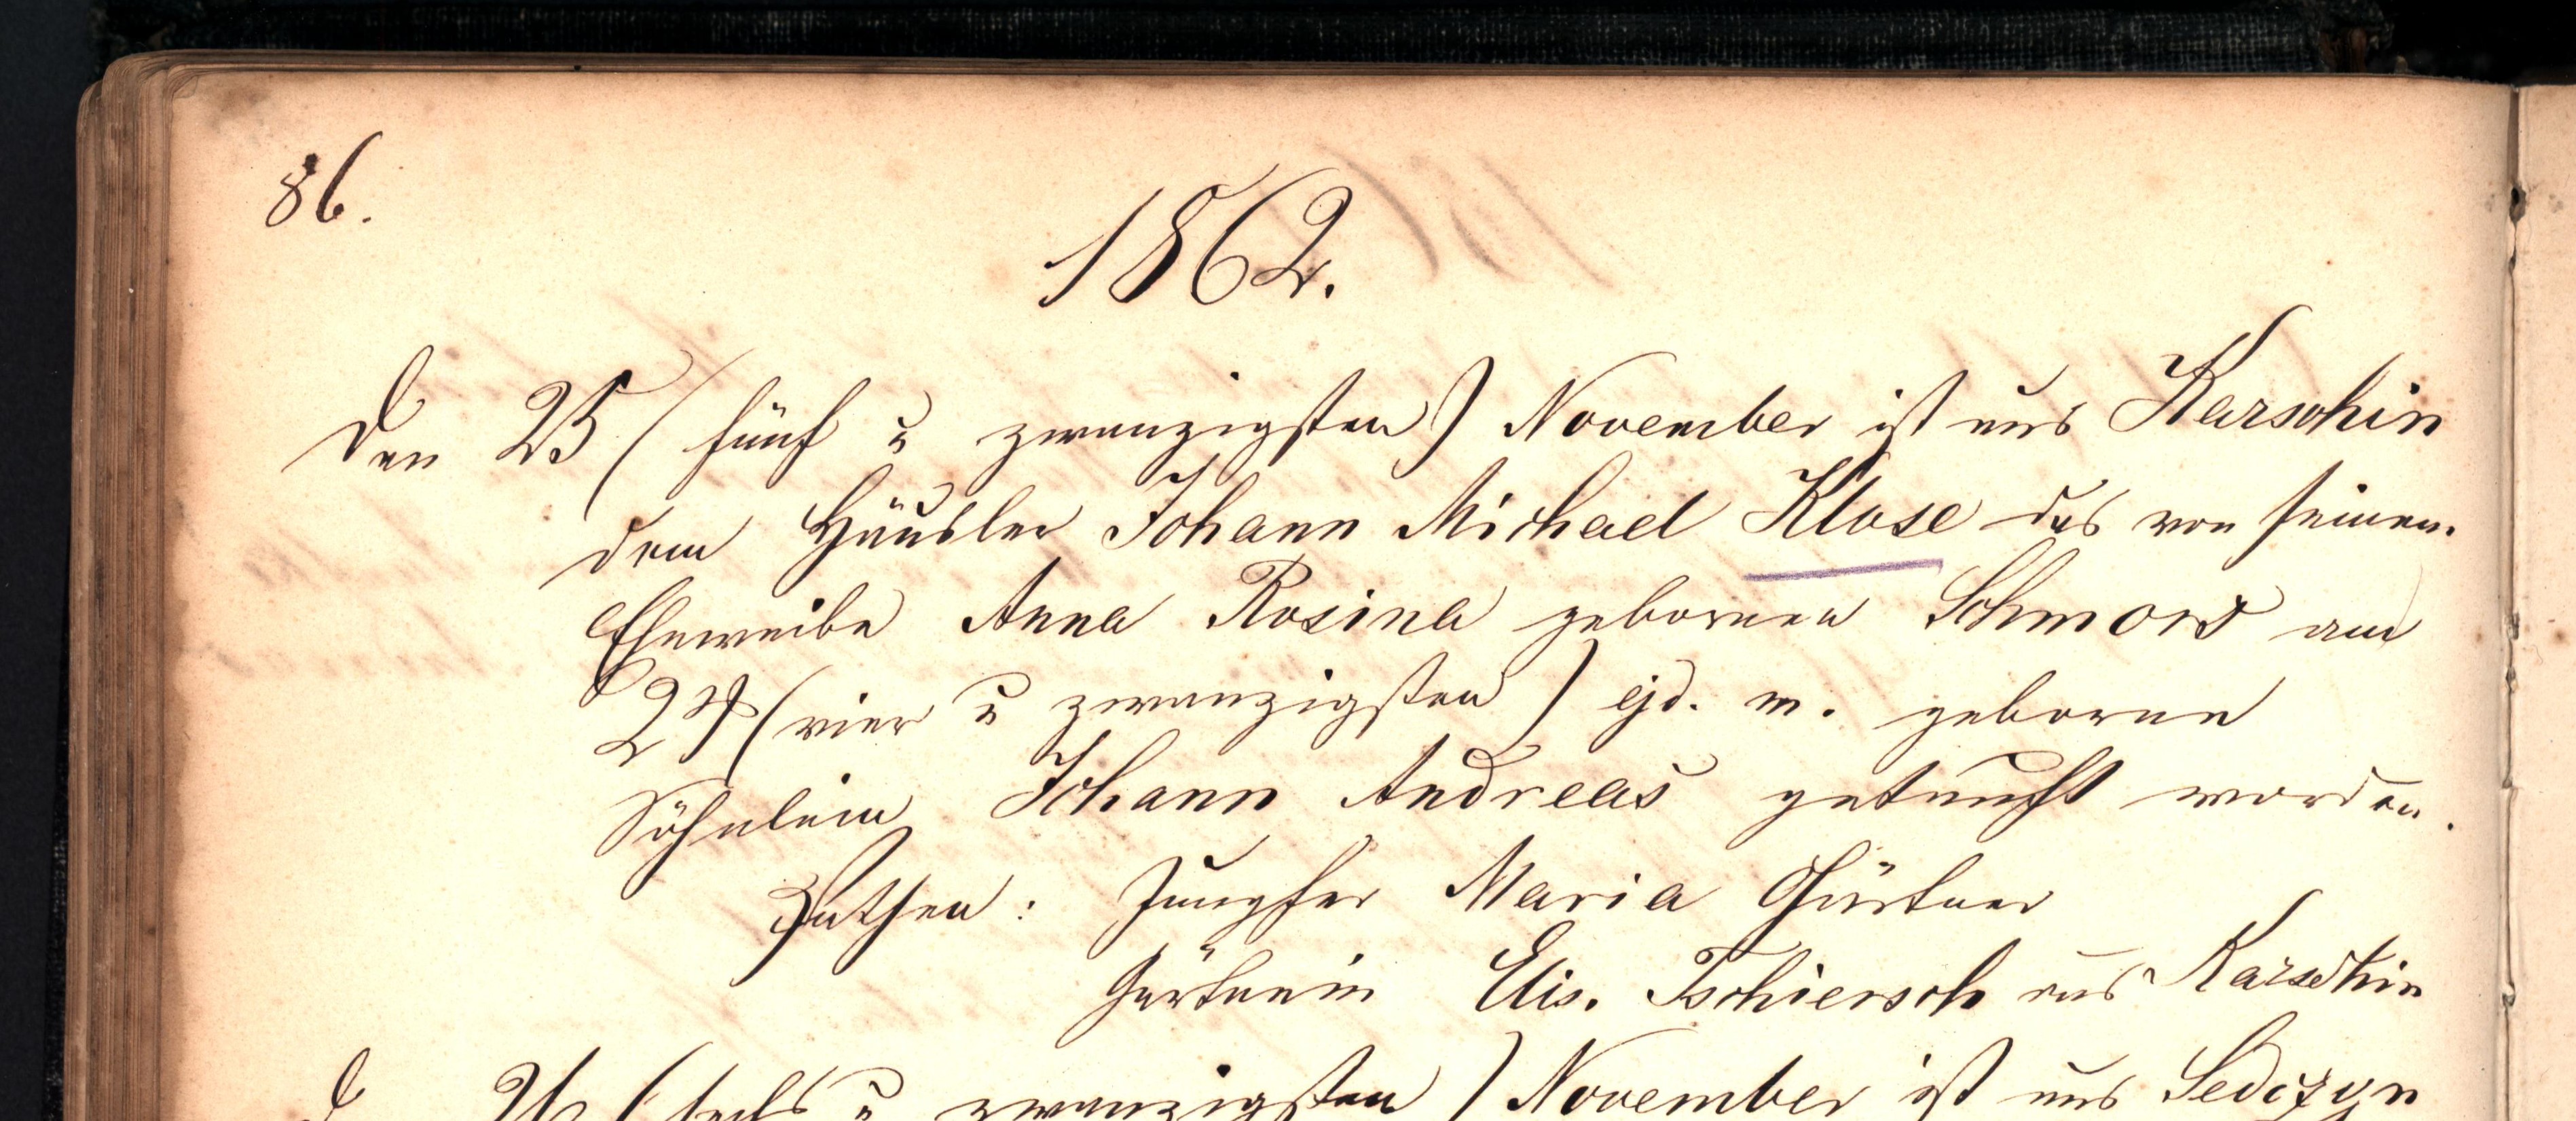 86.
1862.
Den 25 (fünf u zwanzigsten) November ist aus Karschin
dem Häusler Johann Michael Klose das von seinem
Eheweibe Anna Rosina gebornen Schmor am
24 (vier u zwanzigsten) ejd. m. geborne
Söhnlein Johann Andreas getauft worden.
Pathen: Jungfer Maria Gärtner
Gärtnerin Elis. Tschiersch aus Karschin
26 (sechs u zwanzigsten) November ist aus